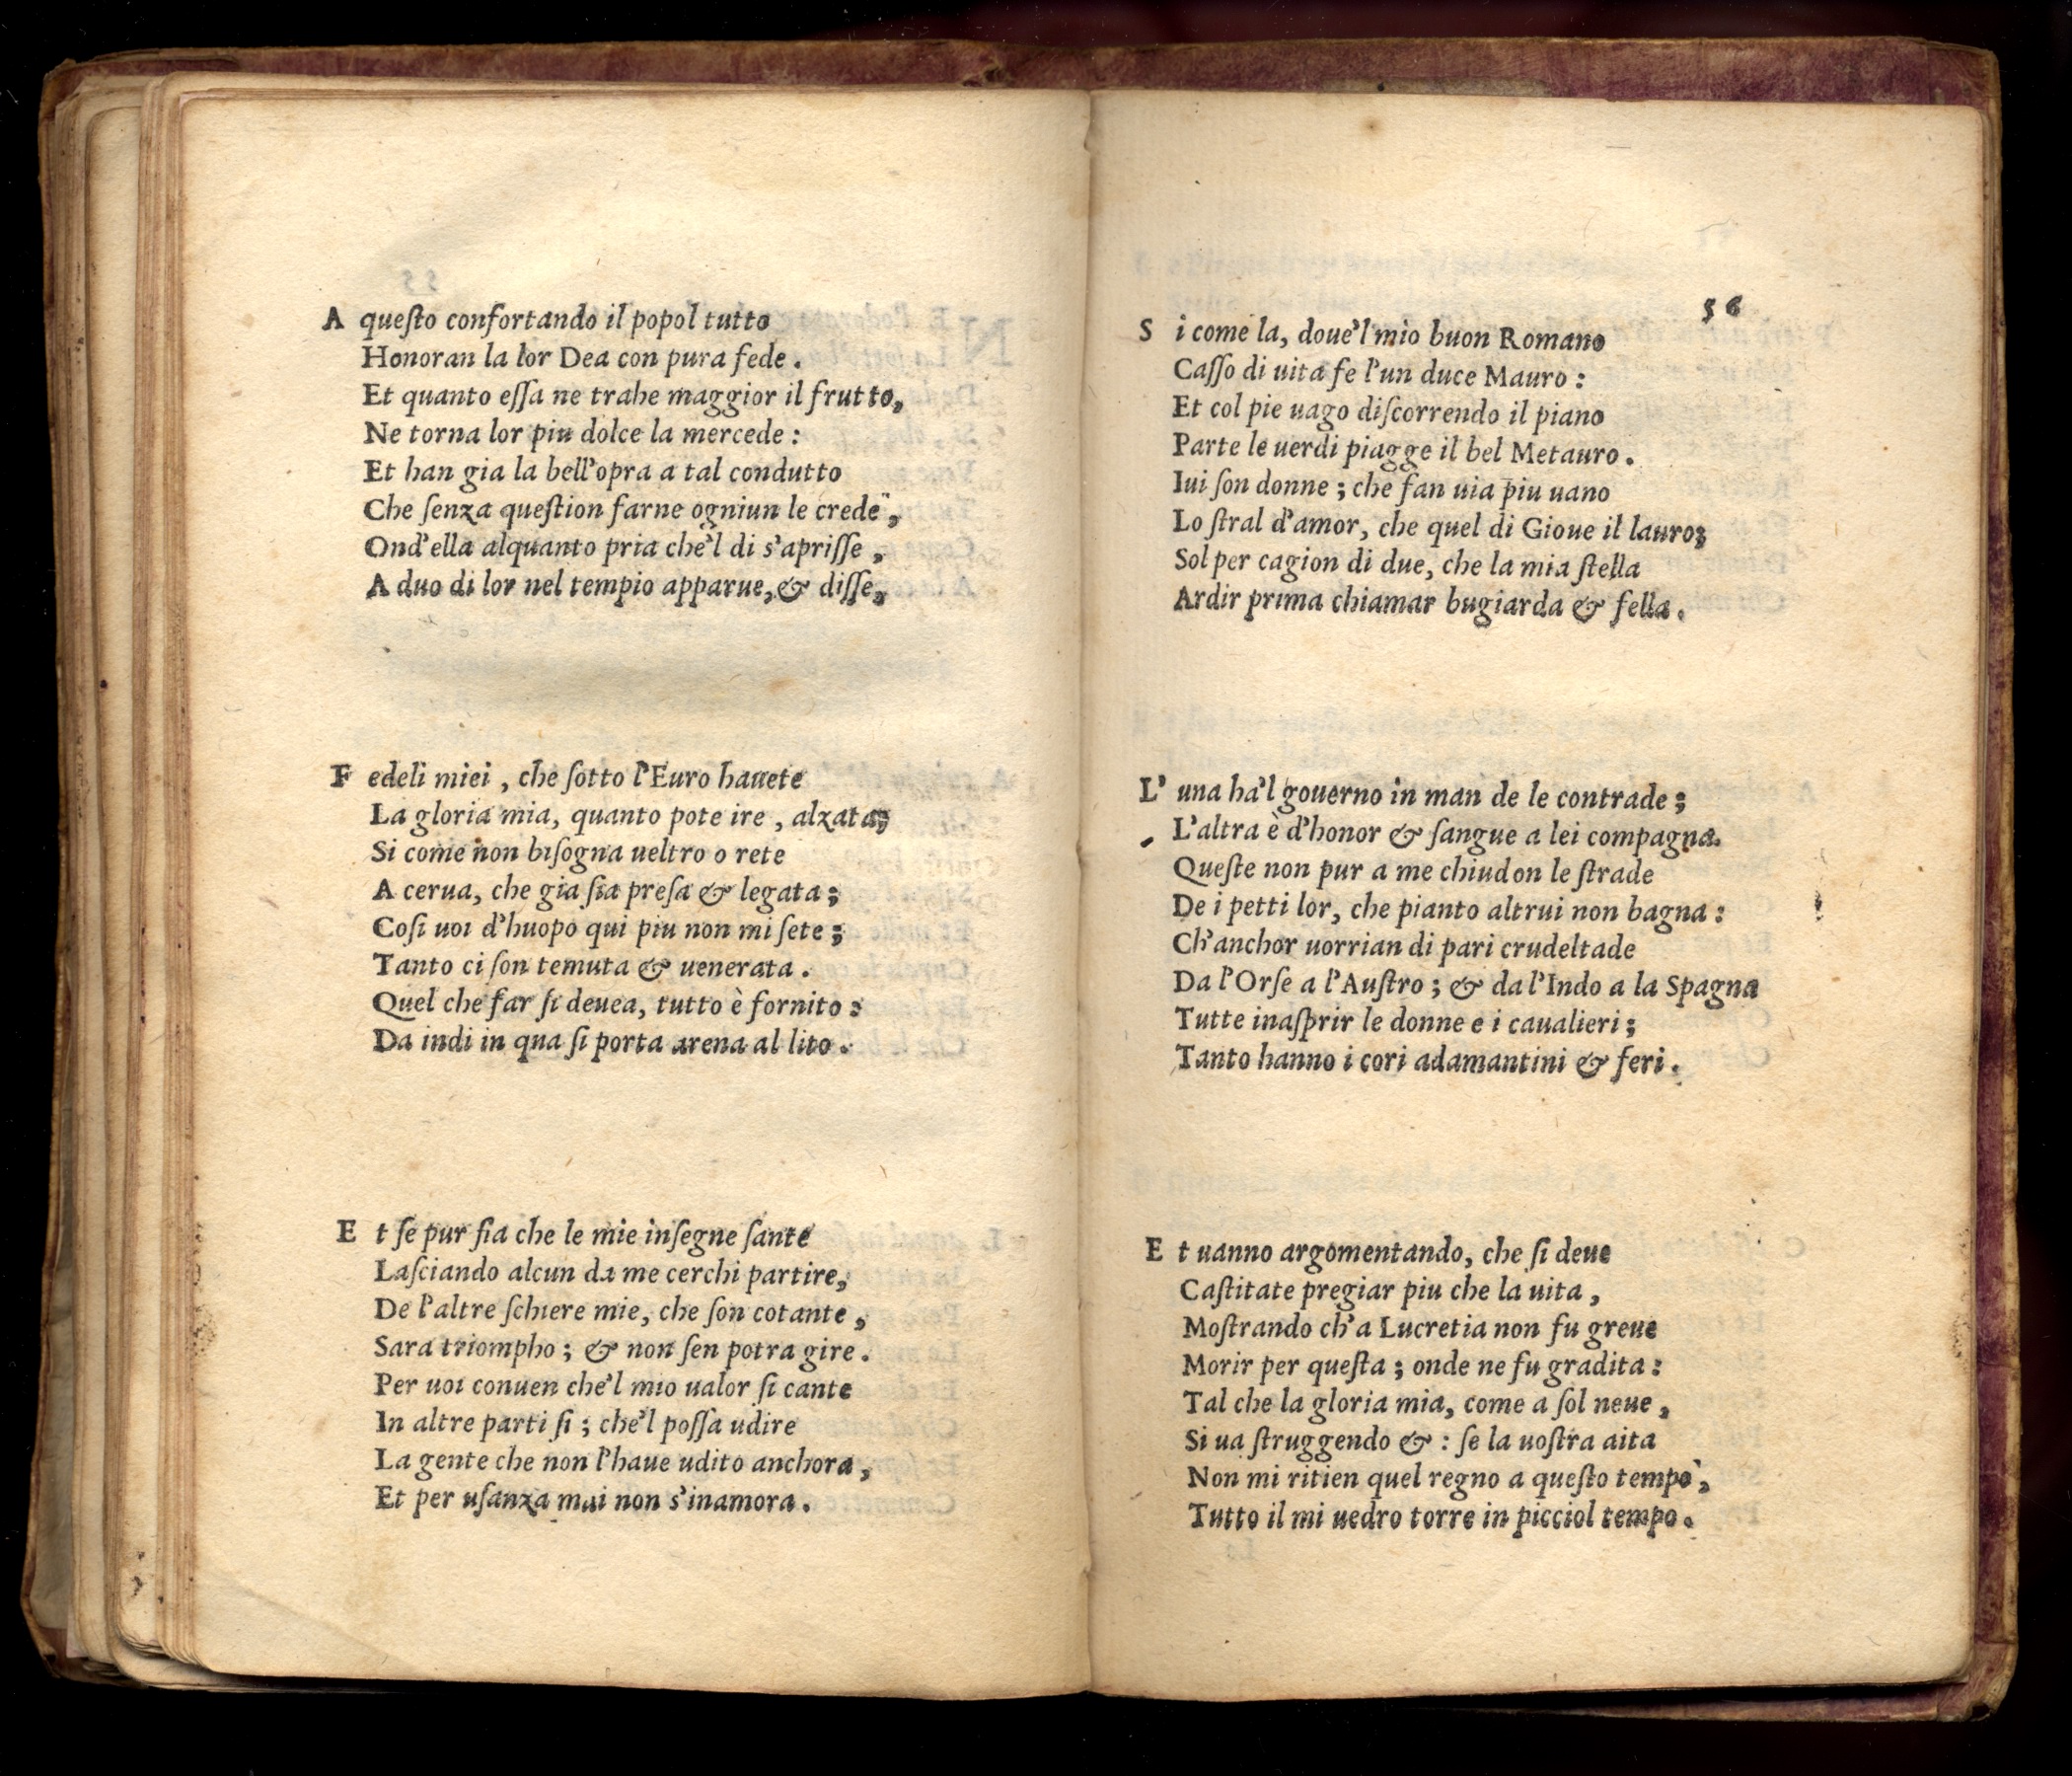 A questo confortando il popol tutto
Honoran la lor Dea con pura fede .
Et quanto essa ne trahe maggior il frutto,
Ne torna lor piu dolce la mercede :
Et han gia la bell'opra a tal condutto
Che senza question farne ogniun le crede ,
Ond'ella alquanto pria che'l di s'aprisse ,
A duo di lor nel tempio apparue, & disse,
F edeli miei , che sotto l'Euro hauete
La gloria mia, quanto pote ire , alzata;
Si come non bisogna ueltro o rete
A cerua, che gia sia presa & legata ;
Cosi uoi d'huopo qui piu non mi sete ;
Tanto ci son temuta & uenerata .
Quel che far si deuea, tutto è fornito :
Da indi in qua si porta arena al lito .
E t se pur fia che le mie insegne sante
Lasciando alcun da me cerchi partire,
De l'altre schiere mie, che son cotante ,
Sara triompho ; & non sen potra gire .
Per uoi conuen che'l mio ualor si cante
In altre parti si ; che'l possa udire
La gente che non l'haue udito anchora ,
Et per usanza mai non s'inamora .
56
S i come la, doue'l mio buon Romano
Casso di uita fe l'un duce Mauro :
Et col pie uago discorrendo il piano
Parte le uerdi piagge il bel Metauro .
Iui son donne ; che fan uia piu uano
Lo stral d'amor, che quel di Gioue il lauro;
Sol per cagion di due, che la mia stella
Ardir prima chiamar bugiarda & fella .
L' una ha'l gouerno in man de le contrade ;
L'altra è d'honor & sangue a lei compagna.
Queste non pur a me chiudon le strade
De i petti lor, che pianto altrui non bagna :
Ch'anchor uorrian di pari crudeltade
Da l'Orse a l'Austro ; & da l'Indo a la Spagna
Tutte inasprir le donne e i caualieri ;
Tanto hanno i cori adamantini & feri .
E t uanno argomentando, che si deue
Castitate pregiar piu che la uita ,
Mostrando ch'a Lucretia non fu greue
Morir per questa ; onde ne fu gradita :
Tal che la gloria mia, come a sol neue ,
Si ua struggendo & : se la uostra aita
Non mi ritien quel regno a questo tempo ,
Tutto il mi uedro torre in picciol tempo .